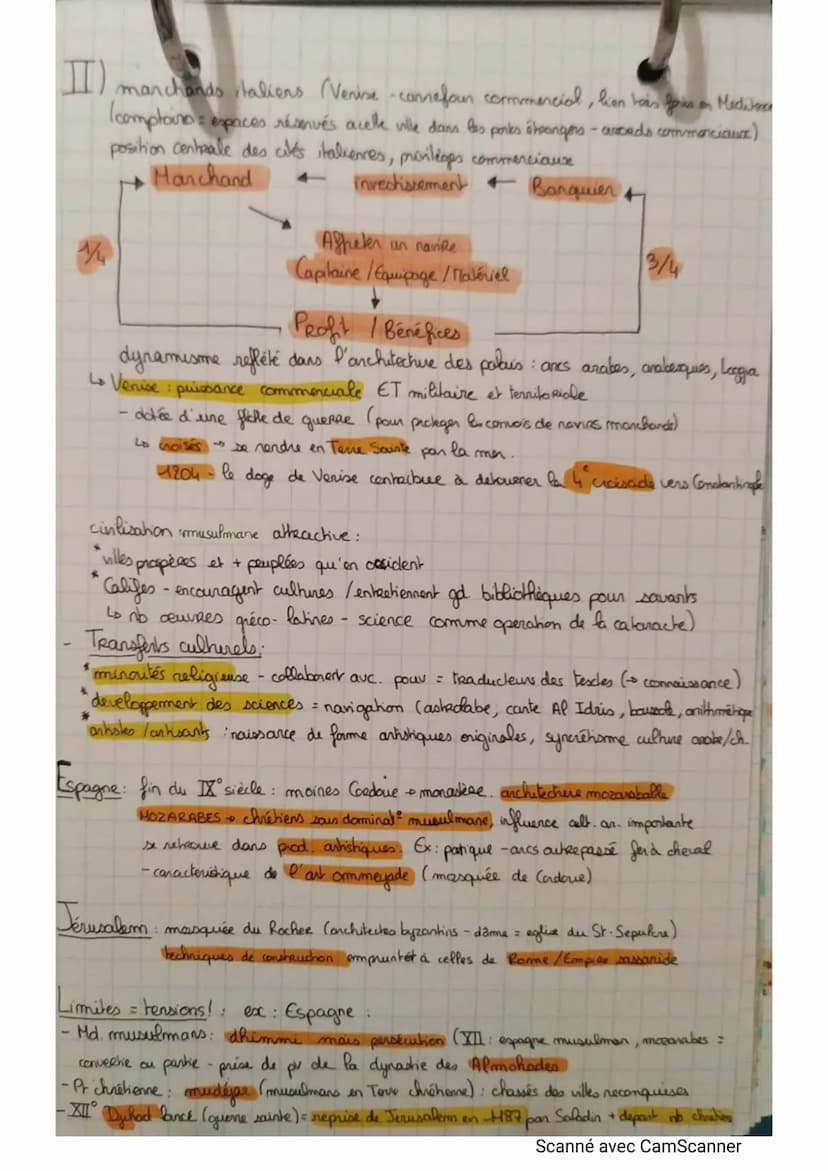 II) marchands italiens (Venise - carrefour commercial, lien très fort en Mediterra
(comptoirs = espaces réservés à cette ville dans les ports étrangers - accords commerciaux)
position centrale des cités italiennes, privilèges commerciaux
Marchand ← invectissement ← Banquier
Affreter un navire
1/4 Capitaine / Equipage / Matériel 3/4
Profit / Bénéfices
dynamisme reflété dans l'architecture des palais : arcs arabes, arabesques, Loggia
↳ Venise : puissance commerciale ET militaire et territoriale
- dotée d'une flotte de guerre (pour proteger les convois de navires marchands)
↳ croisés → se rendre en Terre Sainte par la mer.
1204 - le doge de Venise contribue à detourner la 4e croisade vers Constantinople
civilisation musulmane attractive :
* villes prospères et + peuplées qu'en occident
* Califes - encouragent cultures / entretiennent gd bibliothèques pour savants
↳ nb œuvres gréco-latines - science comme operation de la cataracte)
- Transferts culturels :
* minorités religieuse - collaborent avc. pouv = traducteurs des textes (→ connaissance)
* developpement des sciences = navigation (astrolabe, carte Al Idrisi, boussole, arithmétique
* artistes / artisants : naissance de forme artistiques originales, syncrétisme culture arabe/ch.
Espagne : fin du IX° siècle : moines Cordoue → monastère. architecture mozaraballe
MOZARABES → chrétiens sous dominat° musulmane, influence cult. ar. importante
se retrouve dans prod. artistiques. Ex : portique - arcs outrepassé fer à cheval
- caracteristique de l'art ommeyade (mosquée de Cordoue)
Jérusalem : mosquée du Rocher (architectes byzantins - dôme = eglise du St-Sepulcre)
techniques de construction emprunté à celles de Rome / Empire sassanide
Limites = tensions ! : ex : Espagne :
- Md. musulmans : dhimmi mais persécution (XII : espagne musulman, mozarabes =
convertie ou partie - prise de pv de la dynastie des Almohades
- Pr chrétienne : mudéjar (musulmans en Terre chrétienne) : chassés des villes reconquises
- XII° Djihad lancé (guerre sainte) = reprise de Jerusalem en 1187 par Saladin + depart nb chrétiens
Scanné avec CamScanner